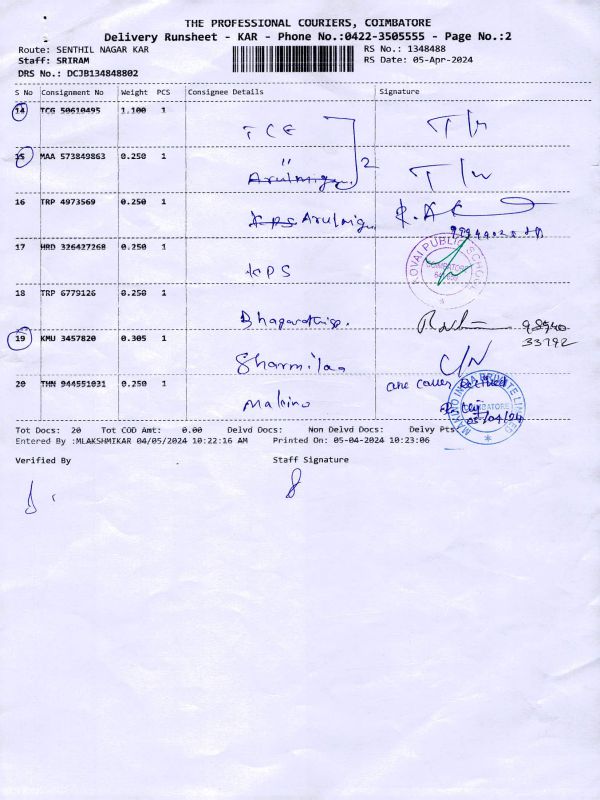 THE PROFESSIONAL COURIERS, COIMBATORE
Delivery Runsheet - KAR - Phone No.:0422-3505555 - Page No.:2
Route: SENTHIL NAGAR KAR
RS No.: 1348488
Staff: SRIRAM
RS Date: 05-Apr-2024
DRS No.: DCJB134848802
S No Consignment No Weight PCS Consignee Details Signature
14 TCG 50610495 1.100 1 TCE
15 MAA 573849863 0.250 1 " 2
16 TRP 4973569 0.250 1 KPS Arulmiga
17 HRD 326427268 0.250 1 KPS
KOVAI PUBLIC SCHOOL
COIMBATORE
18 TRP 6779126 0.250 1
98940
33792
19 KMU 3457820 0.305 1 Sharmilaa C/N
20 THN 944551031 0.250 1 Makino
one cover
MAKINO INDIA PRIVATE LIMITED
COIMBATORE
05/04/24
Tot Docs: 20 Tot COD Amt: 0.00 Delvd Docs: Non Delvd Docs: Delvy Pts:
Entered By :MLAKSHMIKAR 04/05/2024 10:22:16 AM Printed On: 05-04-2024 10:23:06
Verified By Staff Signature